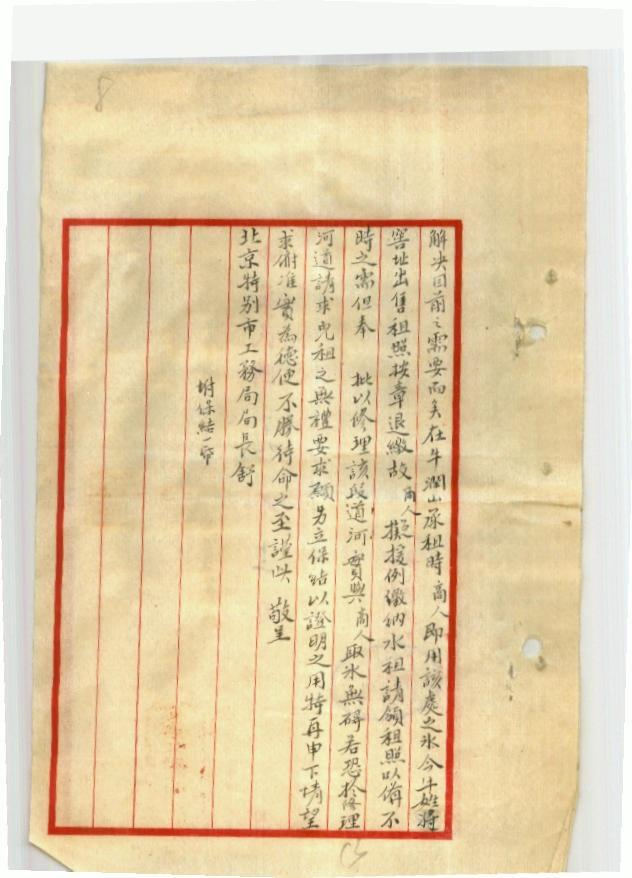 解决目前之需要而矣在牛潤山承租時商人即用該處之氷今牛姓將
窖址出售租照按章退繳故商人擬援例繳納水租請領租照以備不
時之需但奉 批以修理該段道河實與商人取氷無碍若恐於修理
河道請求免租之無禮要求願另立保結以證明之用特再申下情望
求俯准實為德便不勝待命之至謹此 敬呈
北京特别市工務局局長舒
坿保結一帋
8